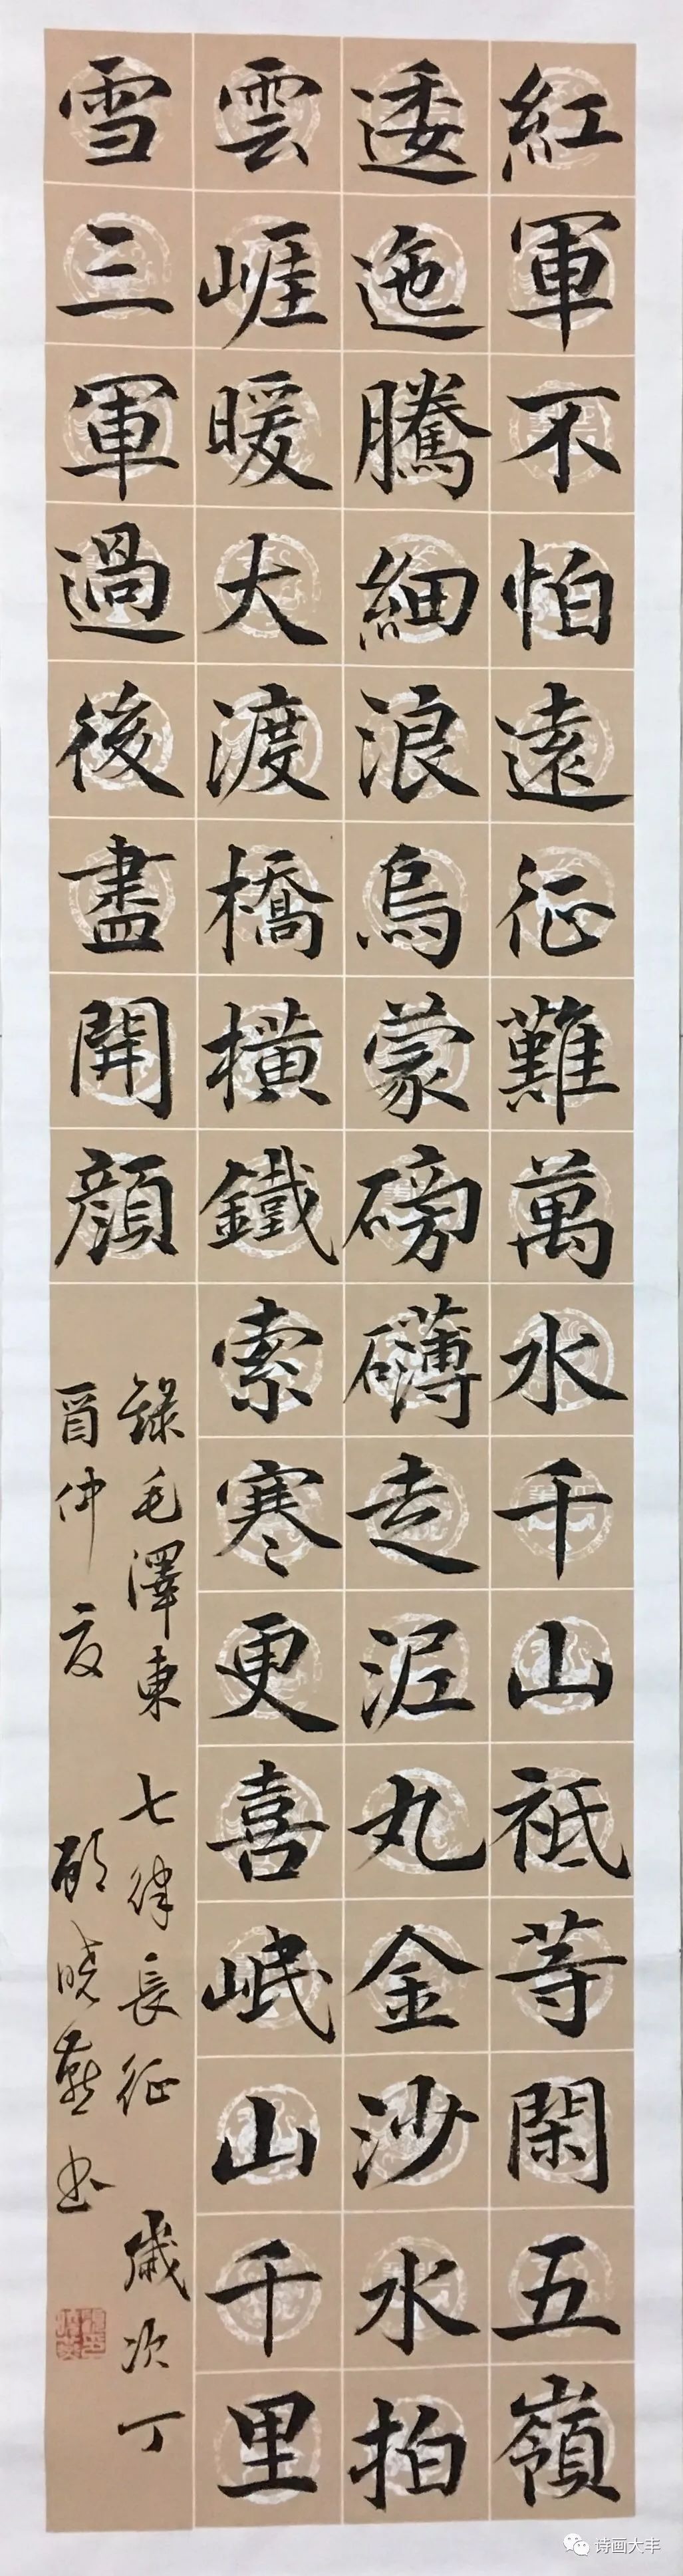 紅軍不怕遠征難萬水千山祗等閑五嶺
逶迤騰細浪烏蒙磅礴走泥丸金沙水拍
雲崕暖大渡橋橫鐵索寒更喜岷山千里
雪三軍過後盡開顔
錄毛澤東七律長征歲次丁
酉仲夏顧曉燕书
诗画大丰